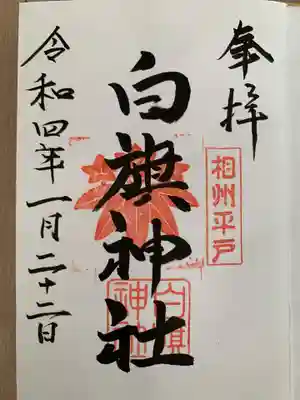 奉拝
相州平戸
白旗神社
白旗神社
令和四年一月二十二日